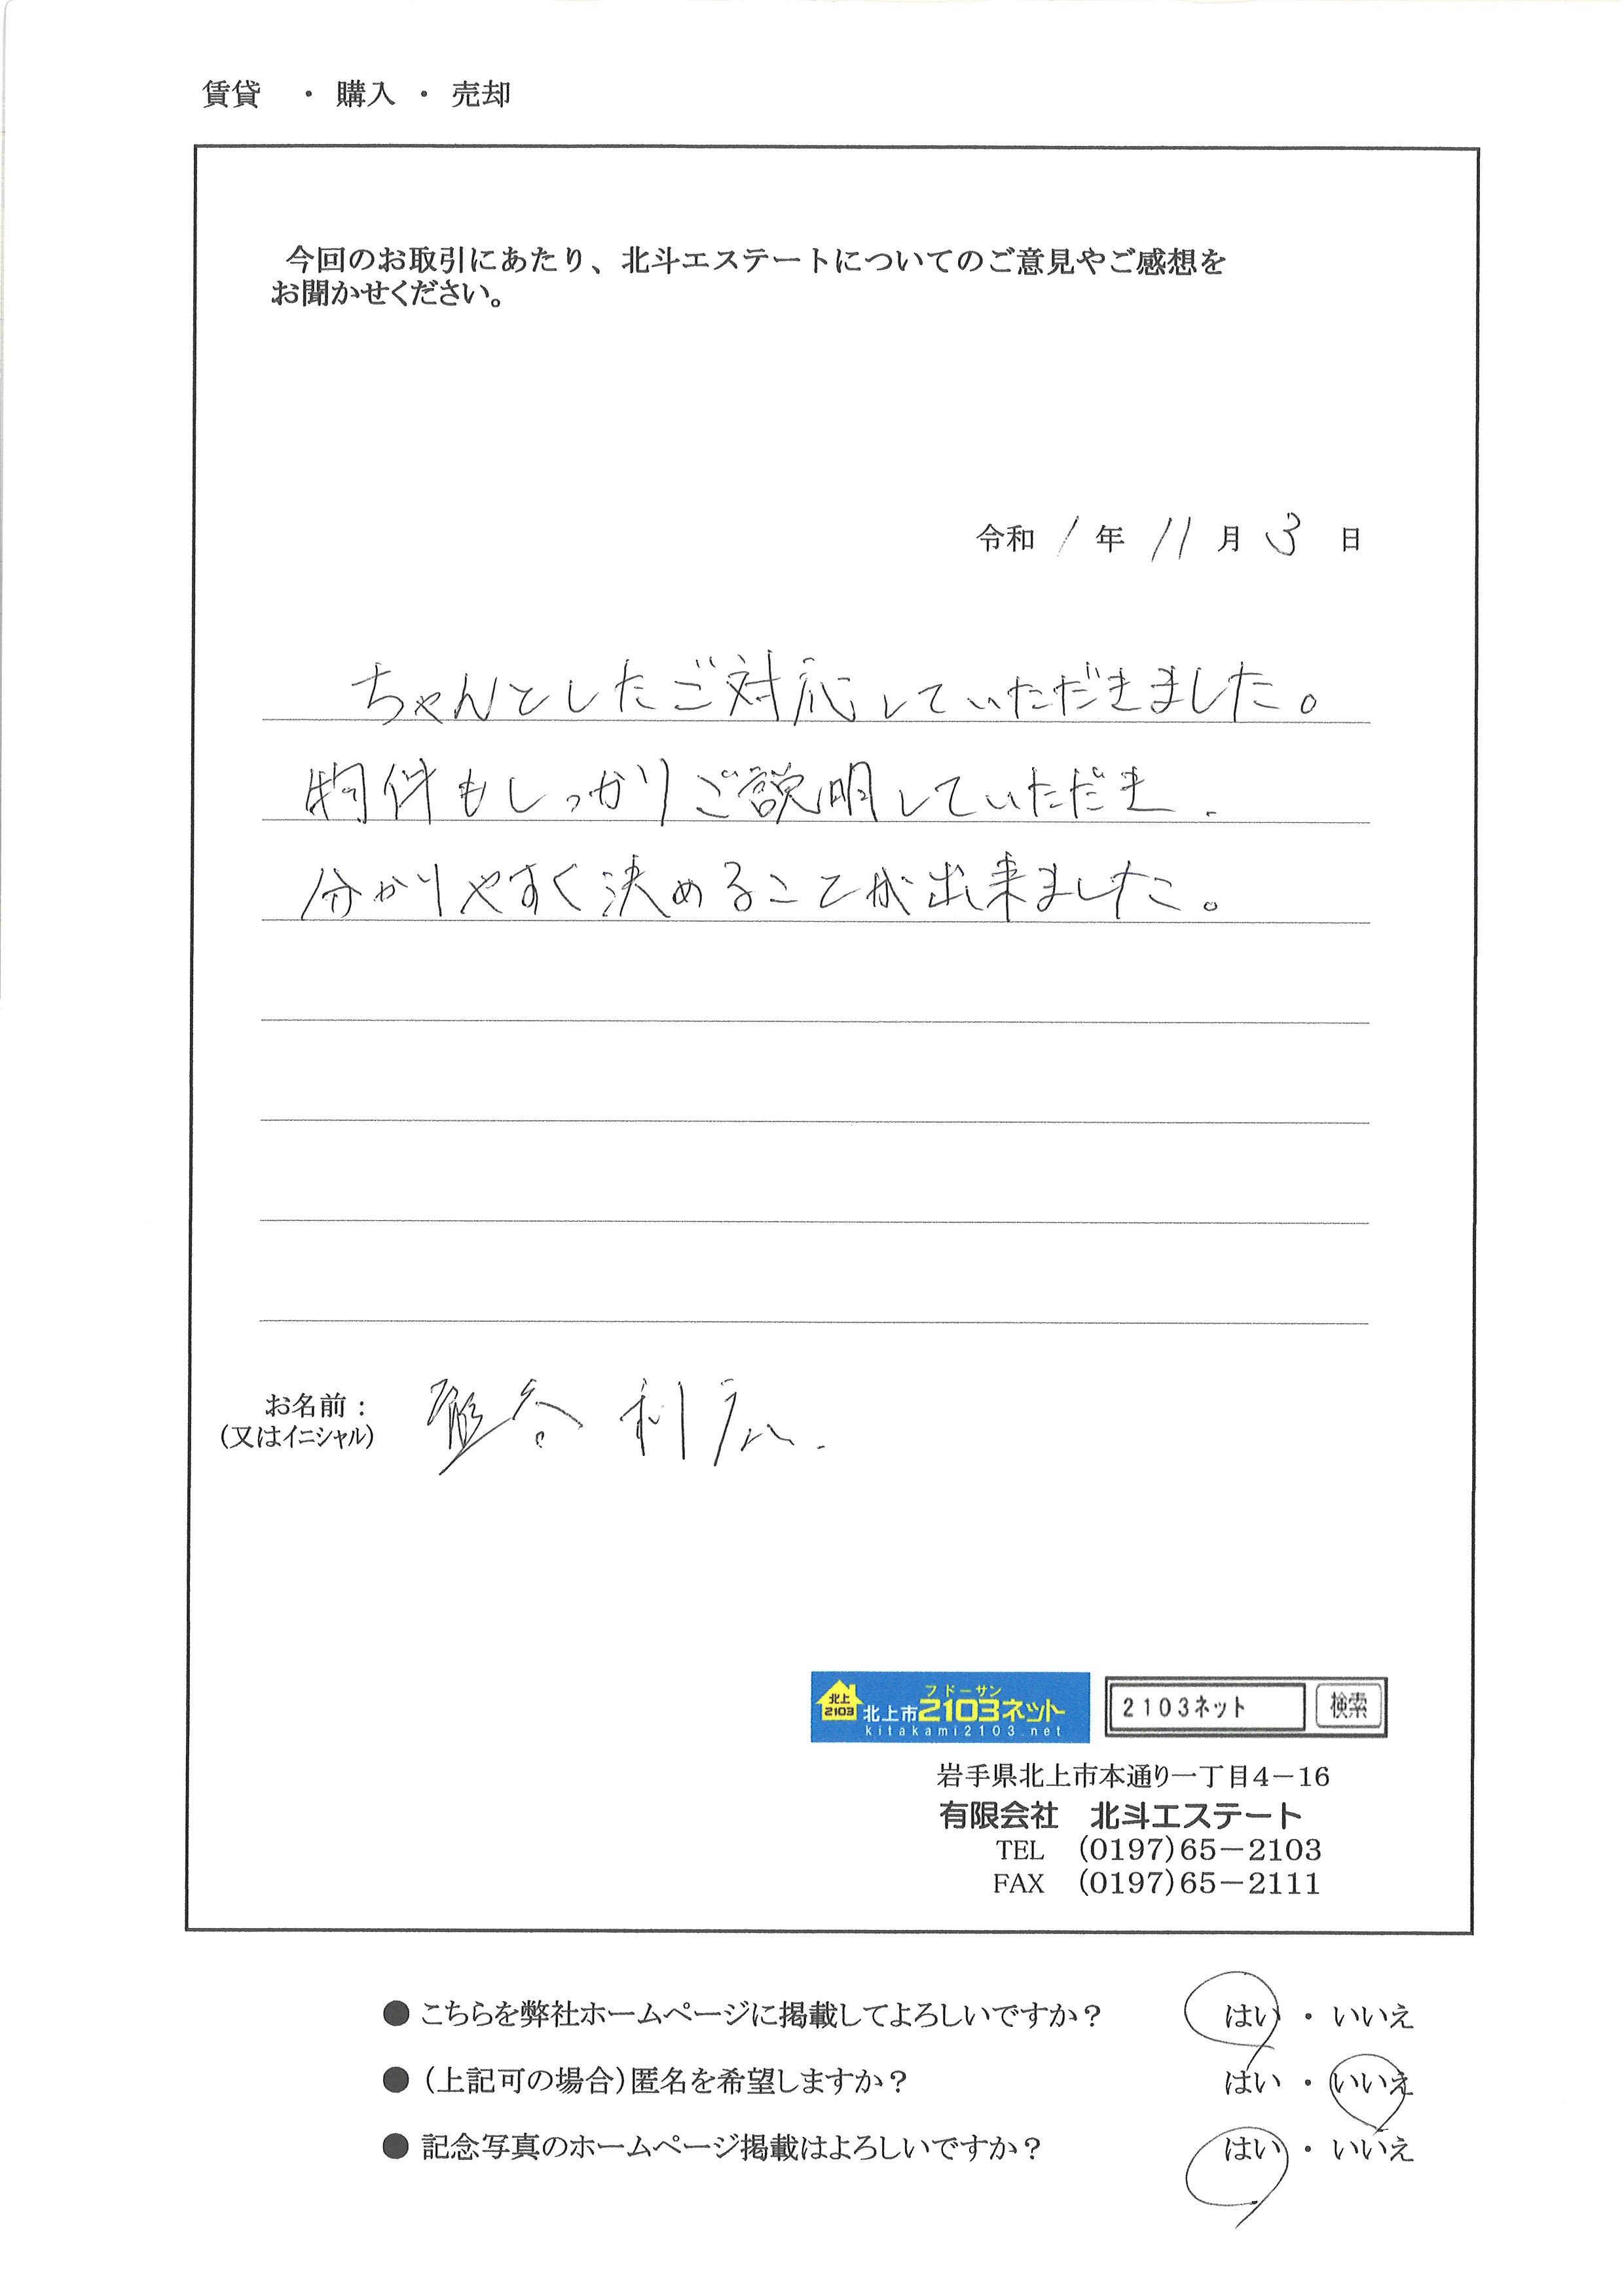 賃貸 ・ 購入 ・ 売却
今回のお取引にあたり、北斗エステートについてのご意見やご感想を
お聞かせください。
令和 1 年 11 月 3 日
ちゃんとしたご対応していただきました。
物件もしっかりご説明していただき、
分かりやすく決めることが出来ました。
お名前： 谷 利広
（又はイニシャル）
フドーサン
北上
2103
北上市2103ネット
kitakami2103.net
2103ネット 検索
岩手県北上市本通り一丁目4－16
有限会社 北斗エステート
TEL （0197）65－2103
FAX （0197）65－2111
●こちらを弊社ホームページに掲載してよろしいですか？ はい ・ いいえ
●（上記可の場合）匿名を希望しますか？ はい ・ いいえ
●記念写真のホームページ掲載はよろしいですか？ はい ・ いいえ